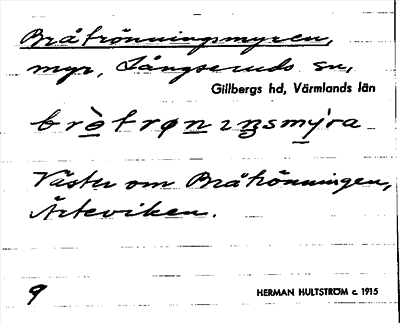 Bråtrönningsmyren,
myr, Långseruds sn,
Gillbergs hd, Värmlands län
brètrønıŋsmýra
Väster om Bråtrönningen,
Ärteviken.
9
HERMAN HULTSTRÖM c. 1915